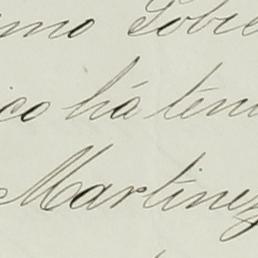 mo Sobre
ico há teni
Martinez